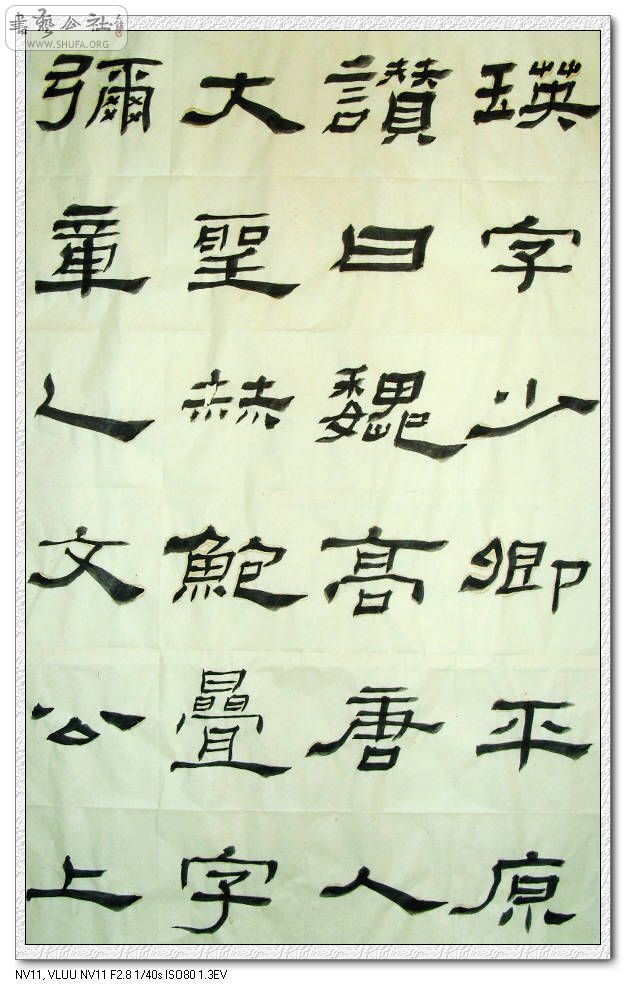 書藝公社
WWW.SHUFA.ORG
瑛字少卿平原
讃曰魏高唐人
大聖赫鮑疊字
彌章乙文公上
NV11, VLUU NV11 F2.8 1/40s ISO80 1.3EV